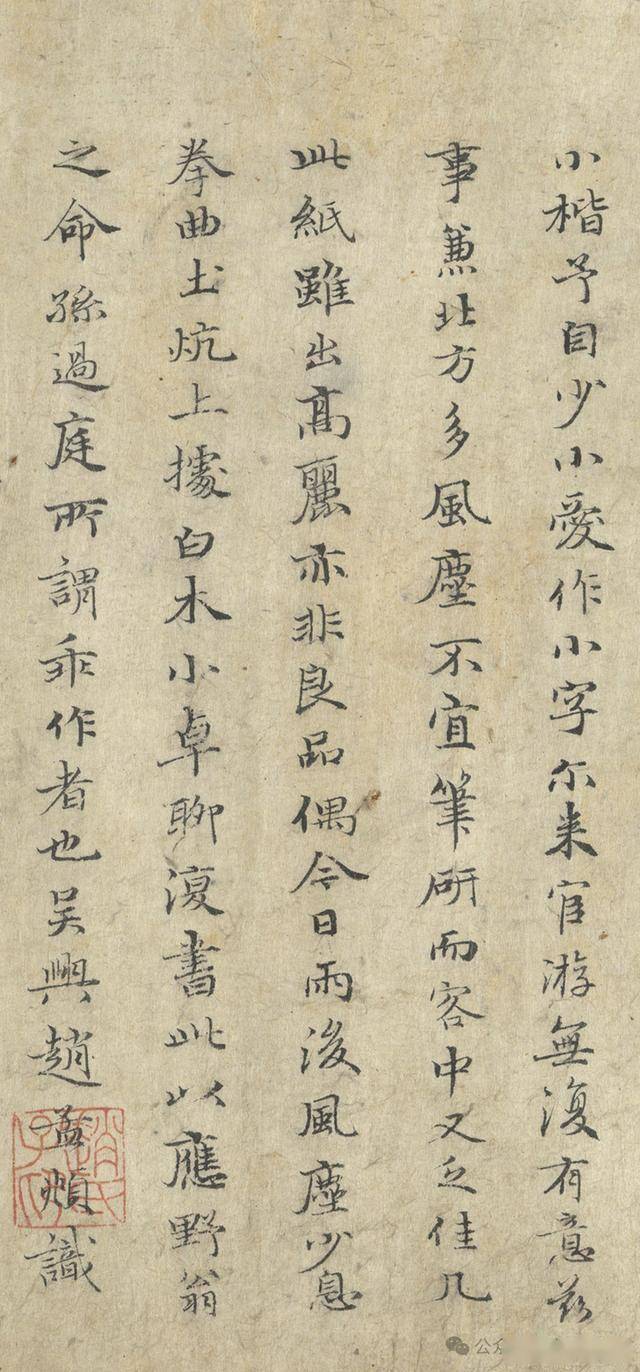 小楷予自少小愛作小字尓来宦游無復有意玆
事兼北方多風塵不宜筆研而客中又乏佳几
此紙雖出高麗亦非良品偶今日雨後風塵少息
拳曲土炕上據白木小卓聊復書此以應野翁
之命孫過庭所謂乖作者也吳興趙孟頫識
趙氏子昂
公众